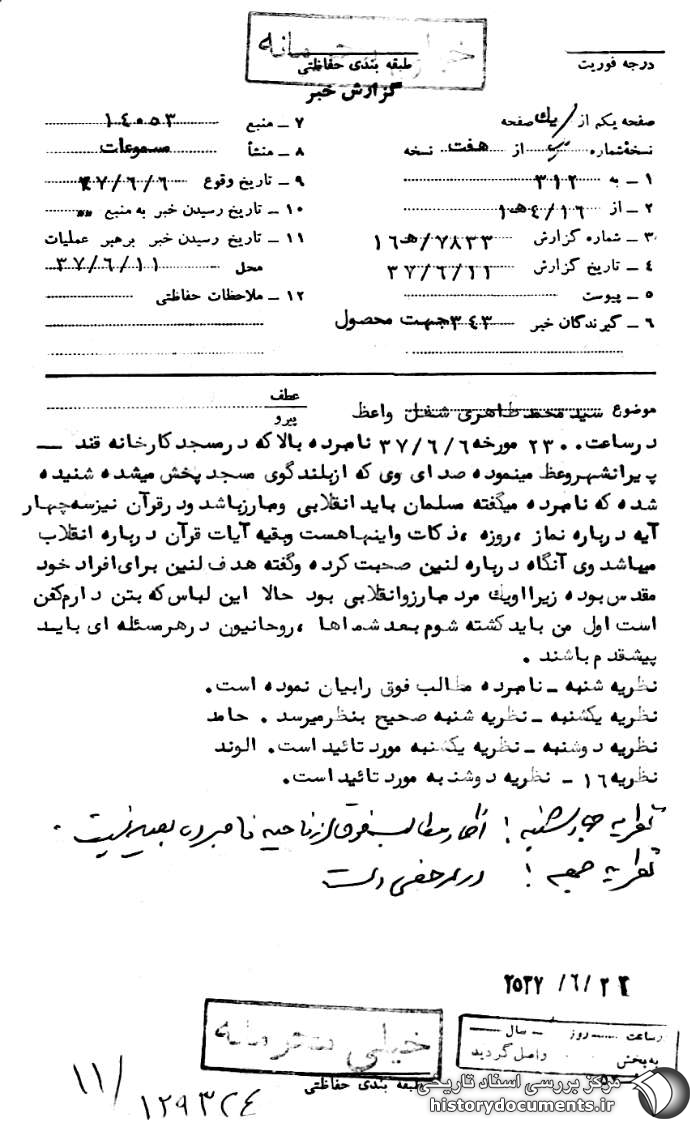 خیلی محرمانه
درجه فوریت
طبقه بندی حفاظتی
گزارش خبر
صفحه یکم از یک صفحه
نسخه شماره از هفت نسخه
۱ ـ به ۳۱۲
۲ ـ از ۱۶/۴ه۱
۳ ـ شماره گزارش ۷۸۳۳/ه۱۶
۴ ـ تاریخ گزارش ۳۷/۶/۱۱
۵ ـ پیوست
۶ ـ گیرندگان خبر ۳۴۳ جهت محصول
۷ ـ منبع ۱۴۰۵۳
۸ ـ منشأ مسموعات
۹ ـ تاریخ وقوع ۳۷/۶/۶
۱۰ ـ تاریخ رسیدن خبر به منبع ״״
۱۱ ـ تاریخ رسیدن خبر برهبر عملیات
محل ۳۷/۶/۱۱
۱۲ ـ ملاحظات حفاظتی
موضوع سید محمد طاهری شغل واعظ
عطف
پیرو
درساعت ۲۳۰۰ مورخه ۳۷/۶/۶ نامبرده بالا که درمسجد کارخانه قند ـ
پیرانشهر وعظ مینموده صدای وی که ازبلندگوی مسجد پخش میشده شنیده
شده که نامبرده میگفته مسلمان باید انقلابی ومبارزباشد ودرقرآن نیزسه‌چهار
آیه درباره نماز ،روزه ،ذکات واینهاهست وبقیه آیات قرآن درباره انقلاب
میباشد وی آنگاه درباره لنین صحبت کرده وگفته هدف لنین برای افراد خود
مقدس بوده زیرا اویک مرد مبارزوانقلابی بود حالا این لباس که بتن دارم کفن
است اول من باید کشته شوم بعد شماها ،روحانیون درهرمسئله ای باید
پیشقدم باشند .
نظریه شنبه ـ نامبرده مطالب فوق رابیان نموده است.
نظریه یکشنبه ـ نظریه شنبه صحیح بنظرمیرسد . حامد
نظریه دوشنبه ـ نظریه یکشنبه مورد تائید است. الوند
نظریه ۱۶ ـ نظریه دوشنبه مورد تائید است.
نظریه چهارشنبه : اظهار مطالب فوق از ناحیه نامبرده بعید نیست .
نظریه جمعه : در مرخصی است
۲۵۳۷/۶/۲۲
خیلی محرمانه
طبقه بندی حفاظتی
ساعت روز سال
به‌بخش واصل گردید
۱۱/
۱۲۹۳۲۴
مرکز بررسی اسناد تاریخی
historydocuments.ir